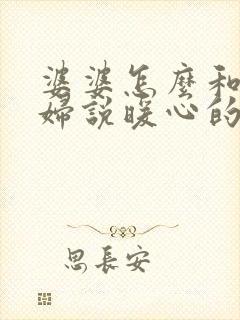 婆婆怎麼和
婦說暖心的
思長安